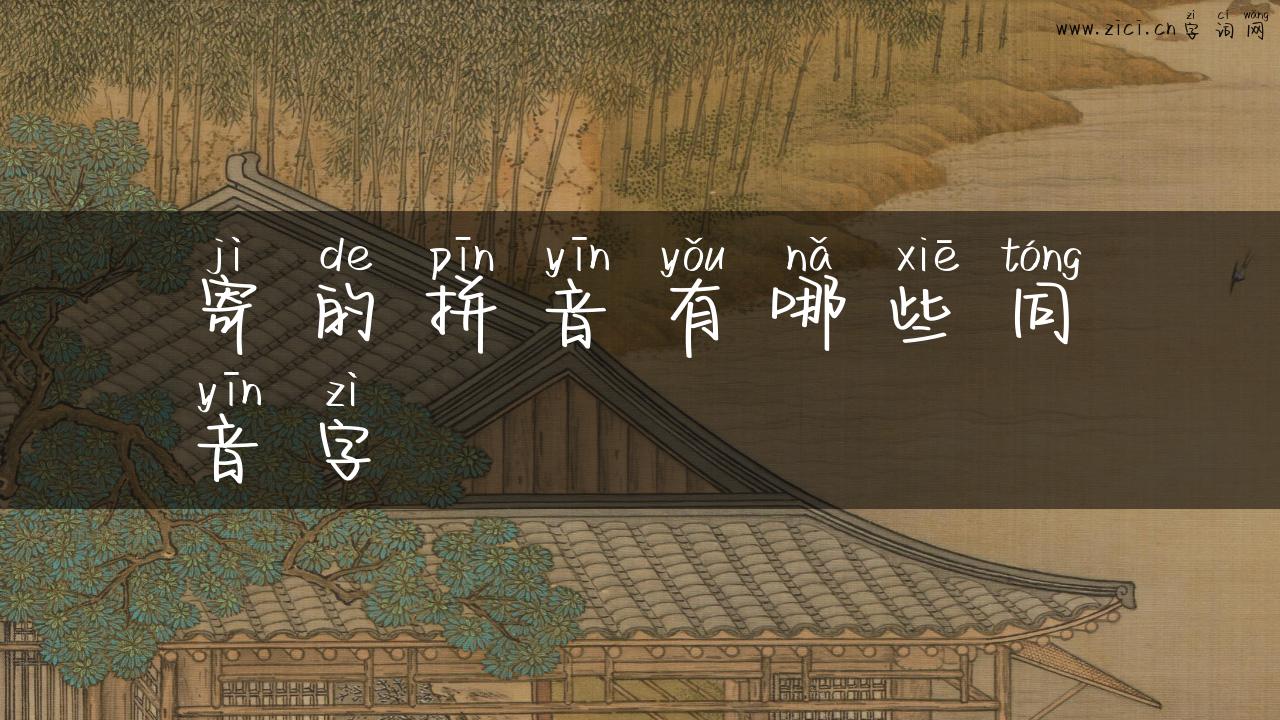 zì cí wǎng
www.zici.cn 字 词 网
jì de pīn yīn yǒu nǎ xiē tóng
寄 的 拼 音 有 哪 些 同
yīn zì
音 字